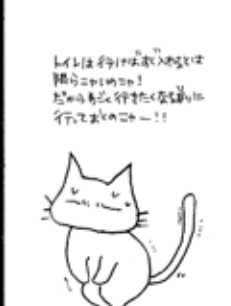 トイレは行けばすぐ入れるとは
限らニャいのニャ!
だからもじく行きたくなる前に
行っておくのニャー!!